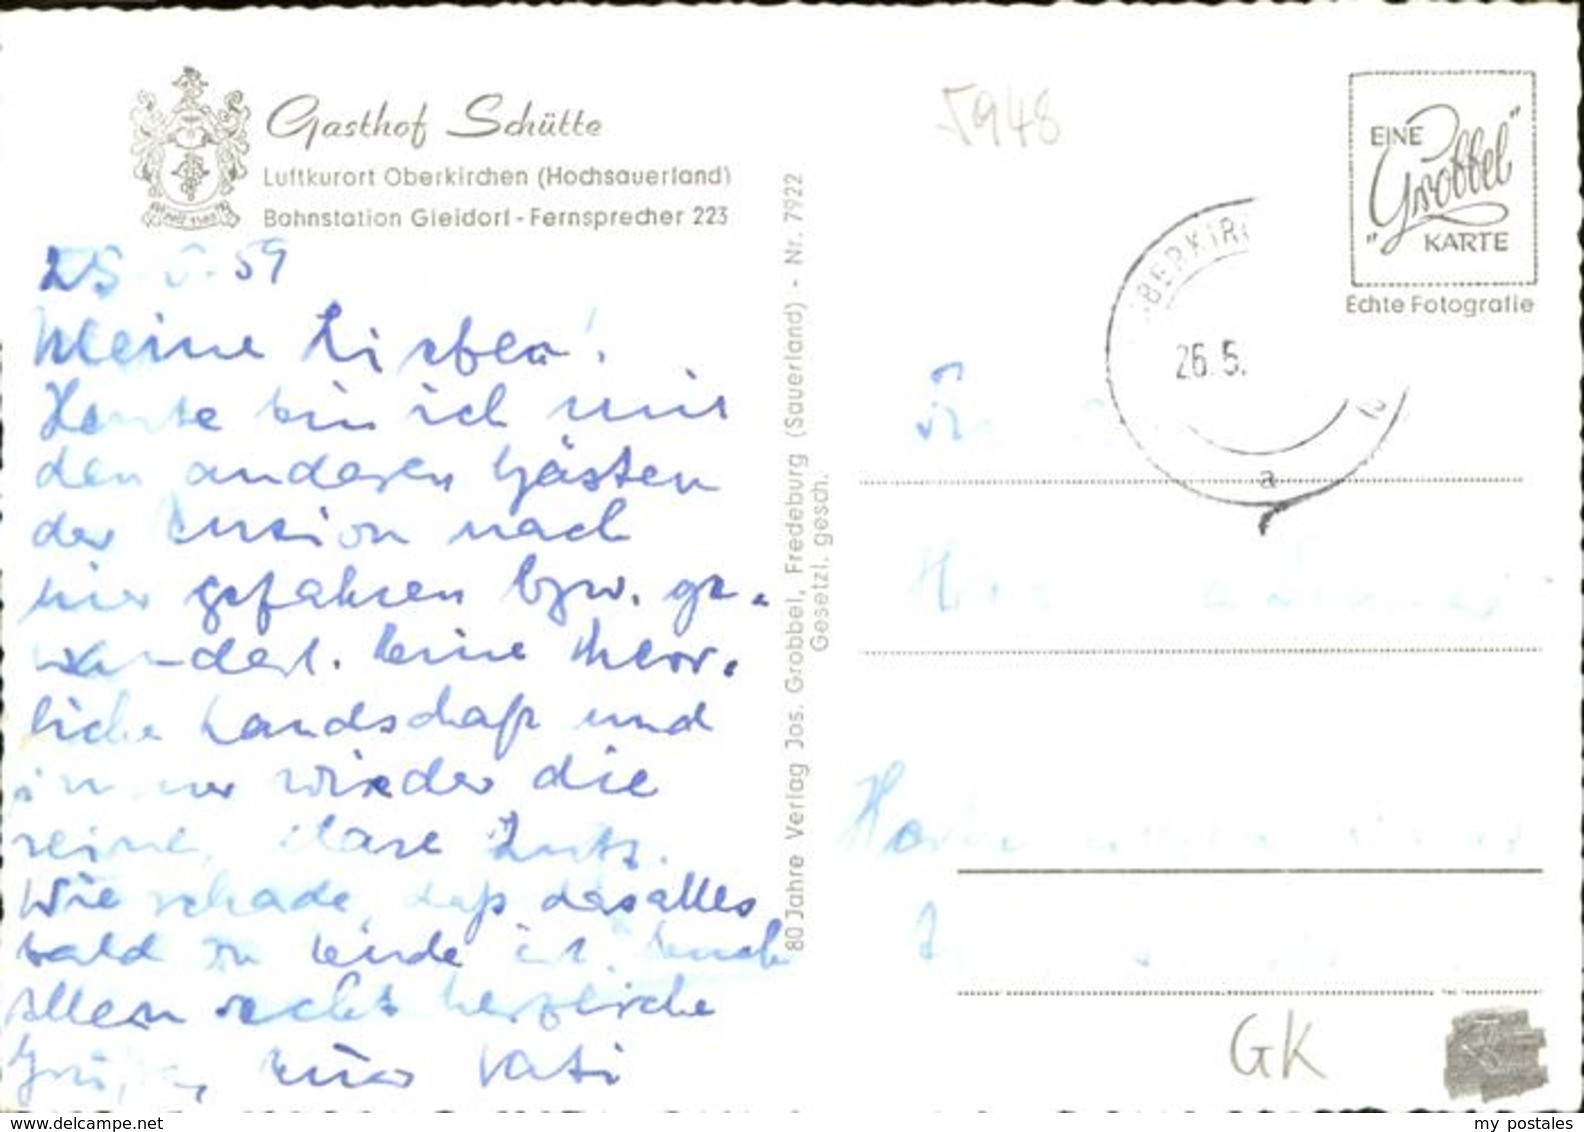 Gasthof Schütte
Luftkurort Oberkirchen (Hochsauerland)
Bahnstation Gleidorf - Fernsprecher 223
5948
EINE
"Grobbel"
KARTE
Echte Fotografie
BERKIRC
26.5.
a
59
Meine Lieben!
Heute bin ich mit
den anderen Gästen
der Pension nach
hier gefahren bzw. ge-
wandert. Eine herr-
liche Landschaft und
immer wieder die
reine, klare Luft.
Wie schade, daß das alles
bald zu Ende ist. Euch
allen recht herzliche
Grüße, Euer Vati
80 Jahre Verlag Jos. Grobbel, Fredeburg (Sauerland) - Nr. 7922
Gesetzl. gesch.
GK
www.delcampe.net
my postales